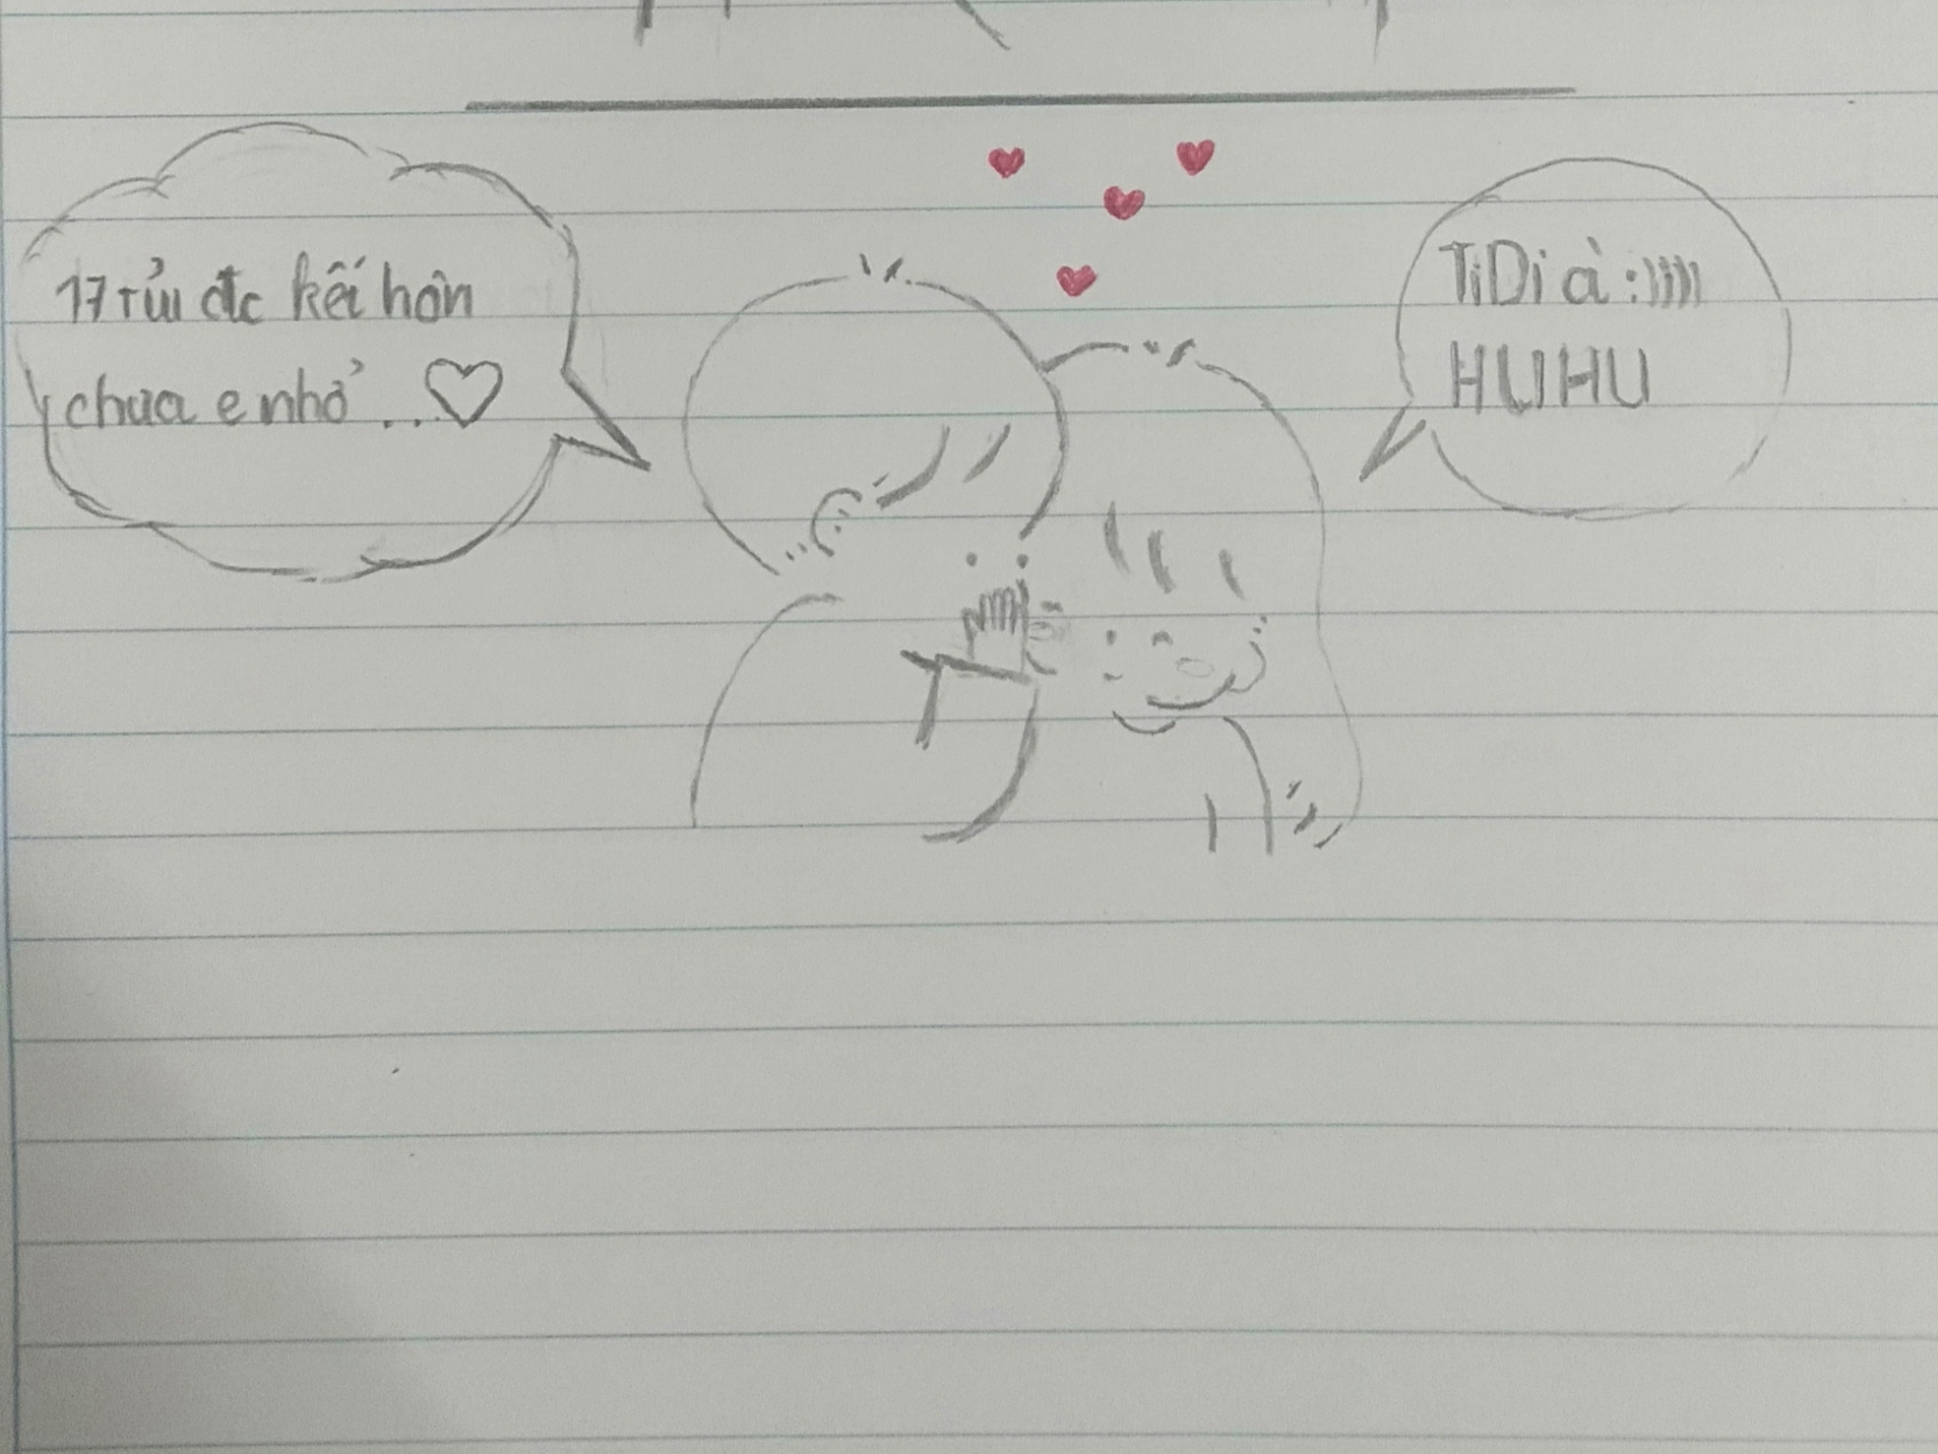 17 tủi đc kết hôn
chưa e nhỏ ... ♡
TiDi à :)))))
HUHU